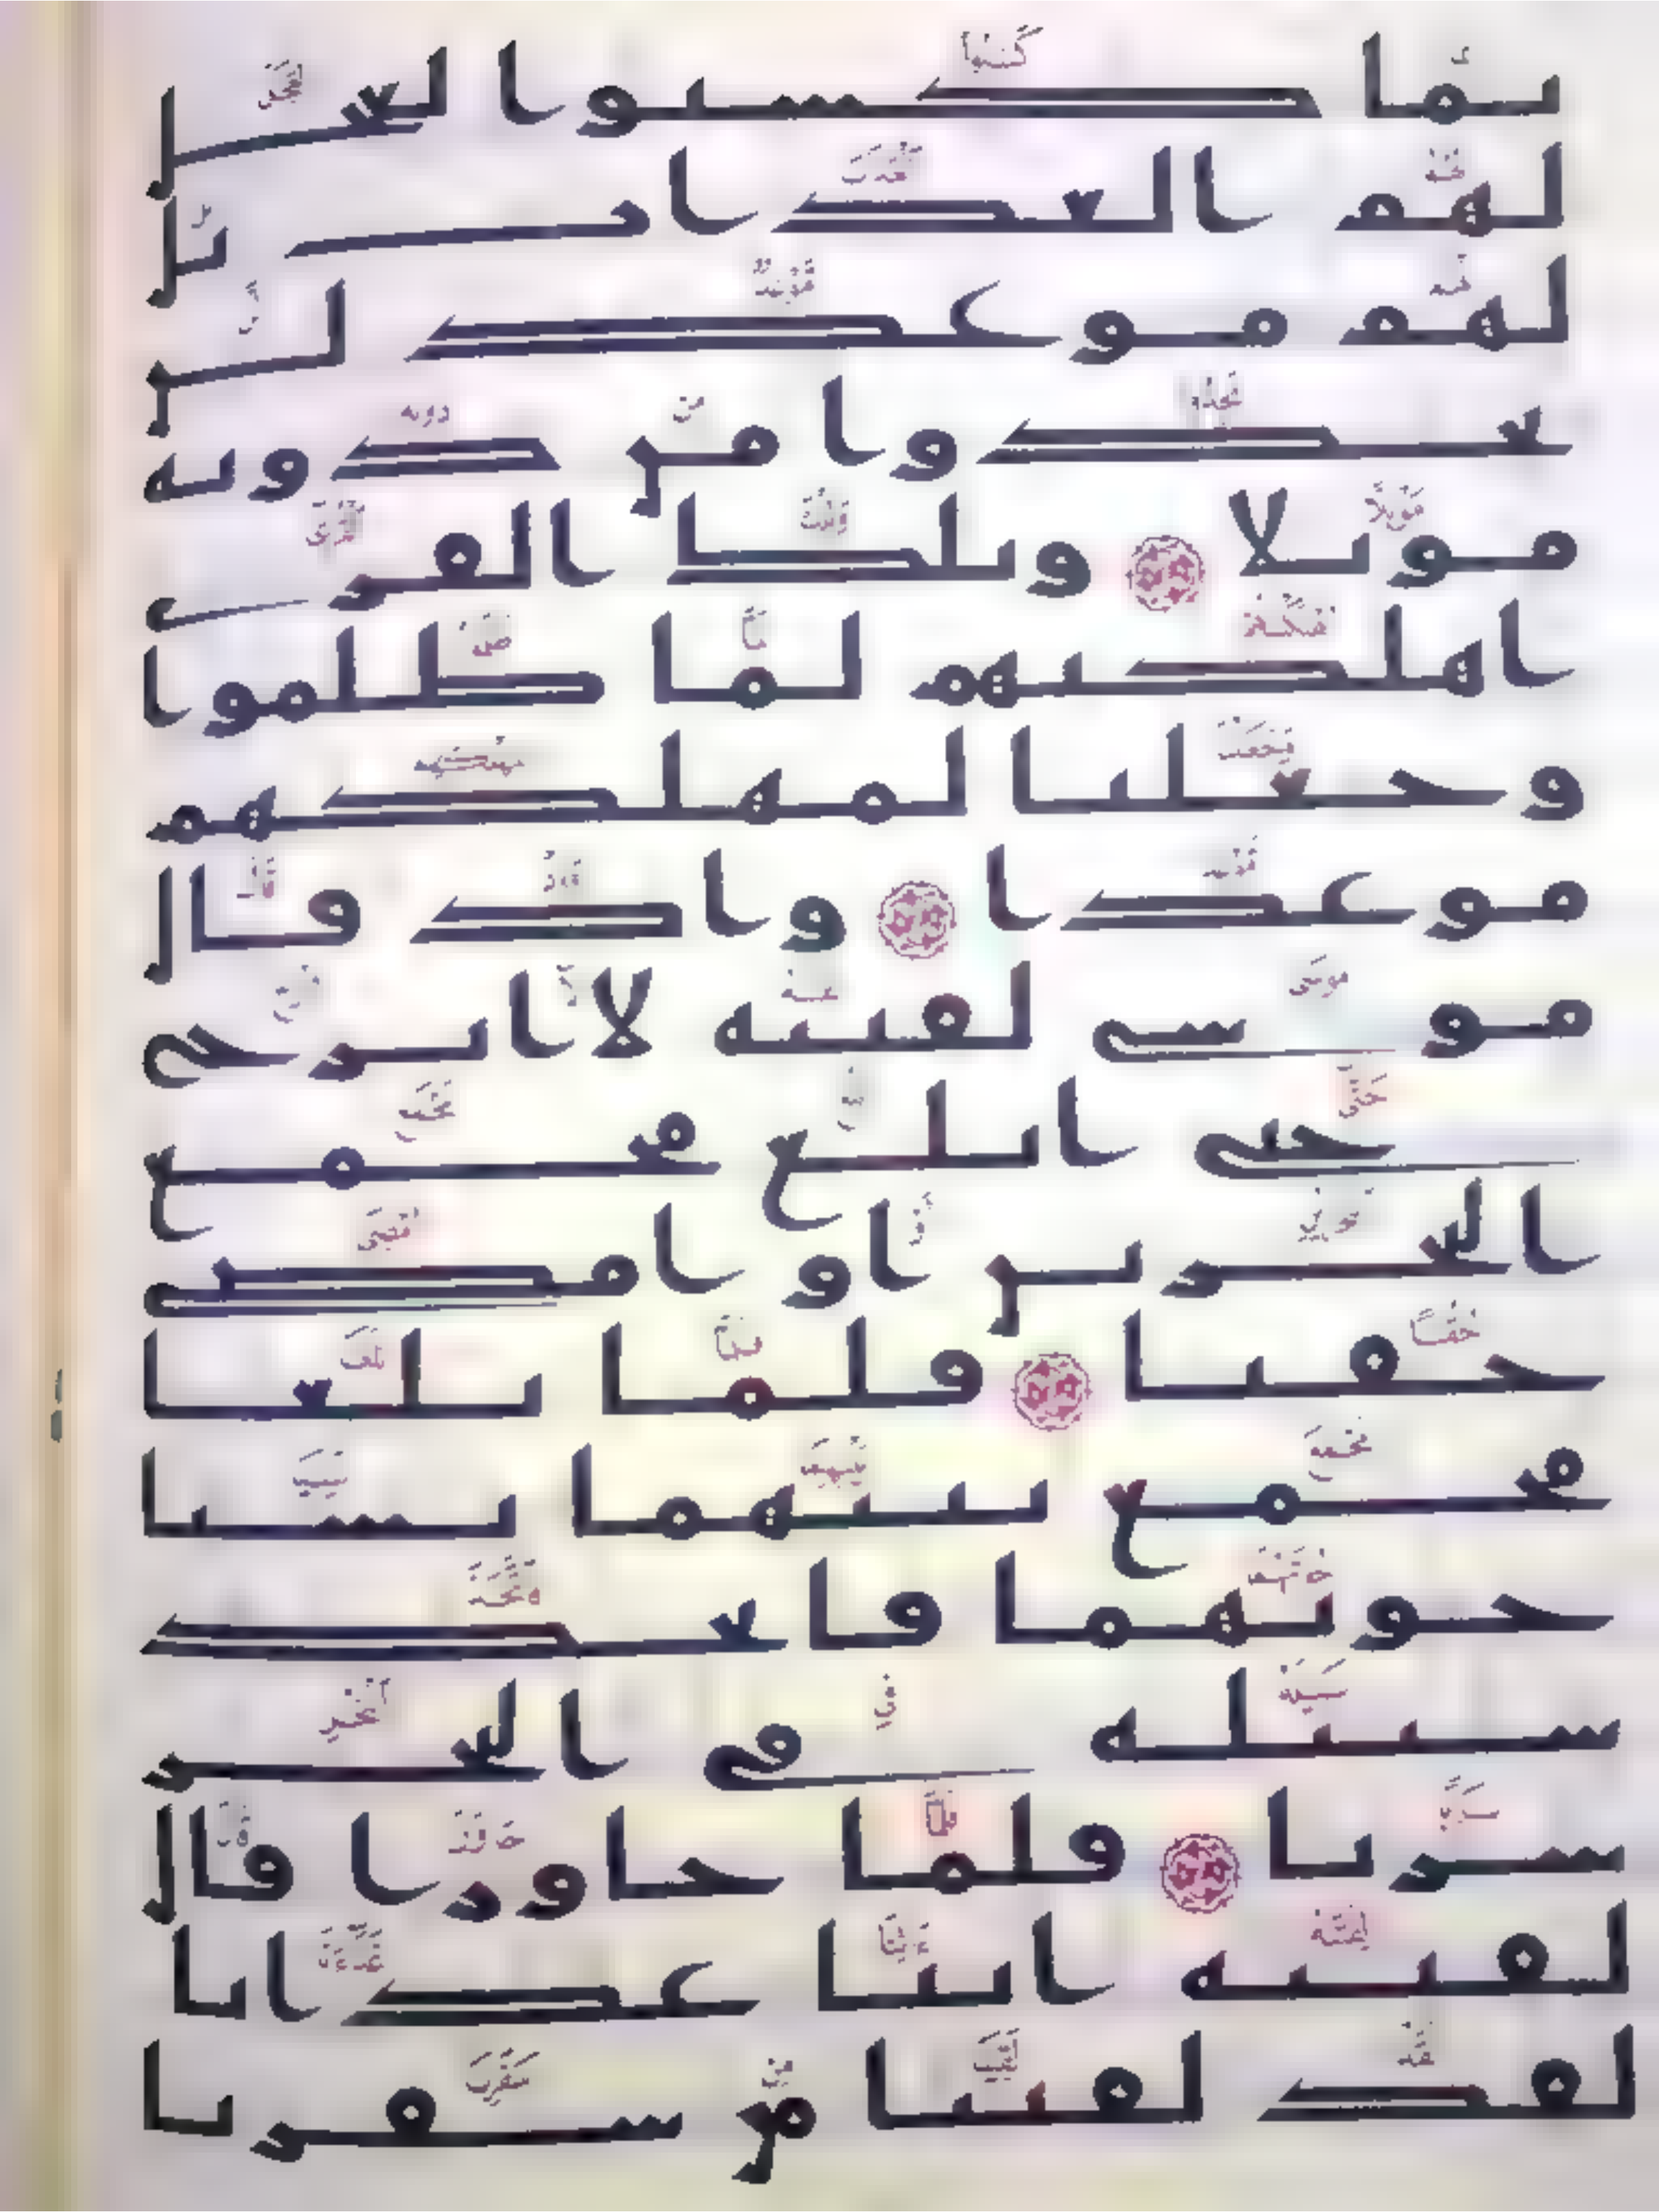 بما كسبوا لعجل
لهم العذاب بل
لهم موعد لن
يجدوا من دونه
موىلا وتلك القرى
اهلكنهم لما ظلموا
وجعلنا لمهلكهم
موعدا واذ قال
موسى لفتيه لا ابرح
حتى ابلغ مجمع
البحرين او امضى
حقبا فلما بلغا
مجمع بينهما نسيا
حوتهما فاتخذ
سبيله فى البحر
سربا فلما جاوزا قال
لفتيه اتنا غدانا
لقد لقينا من سفرنا